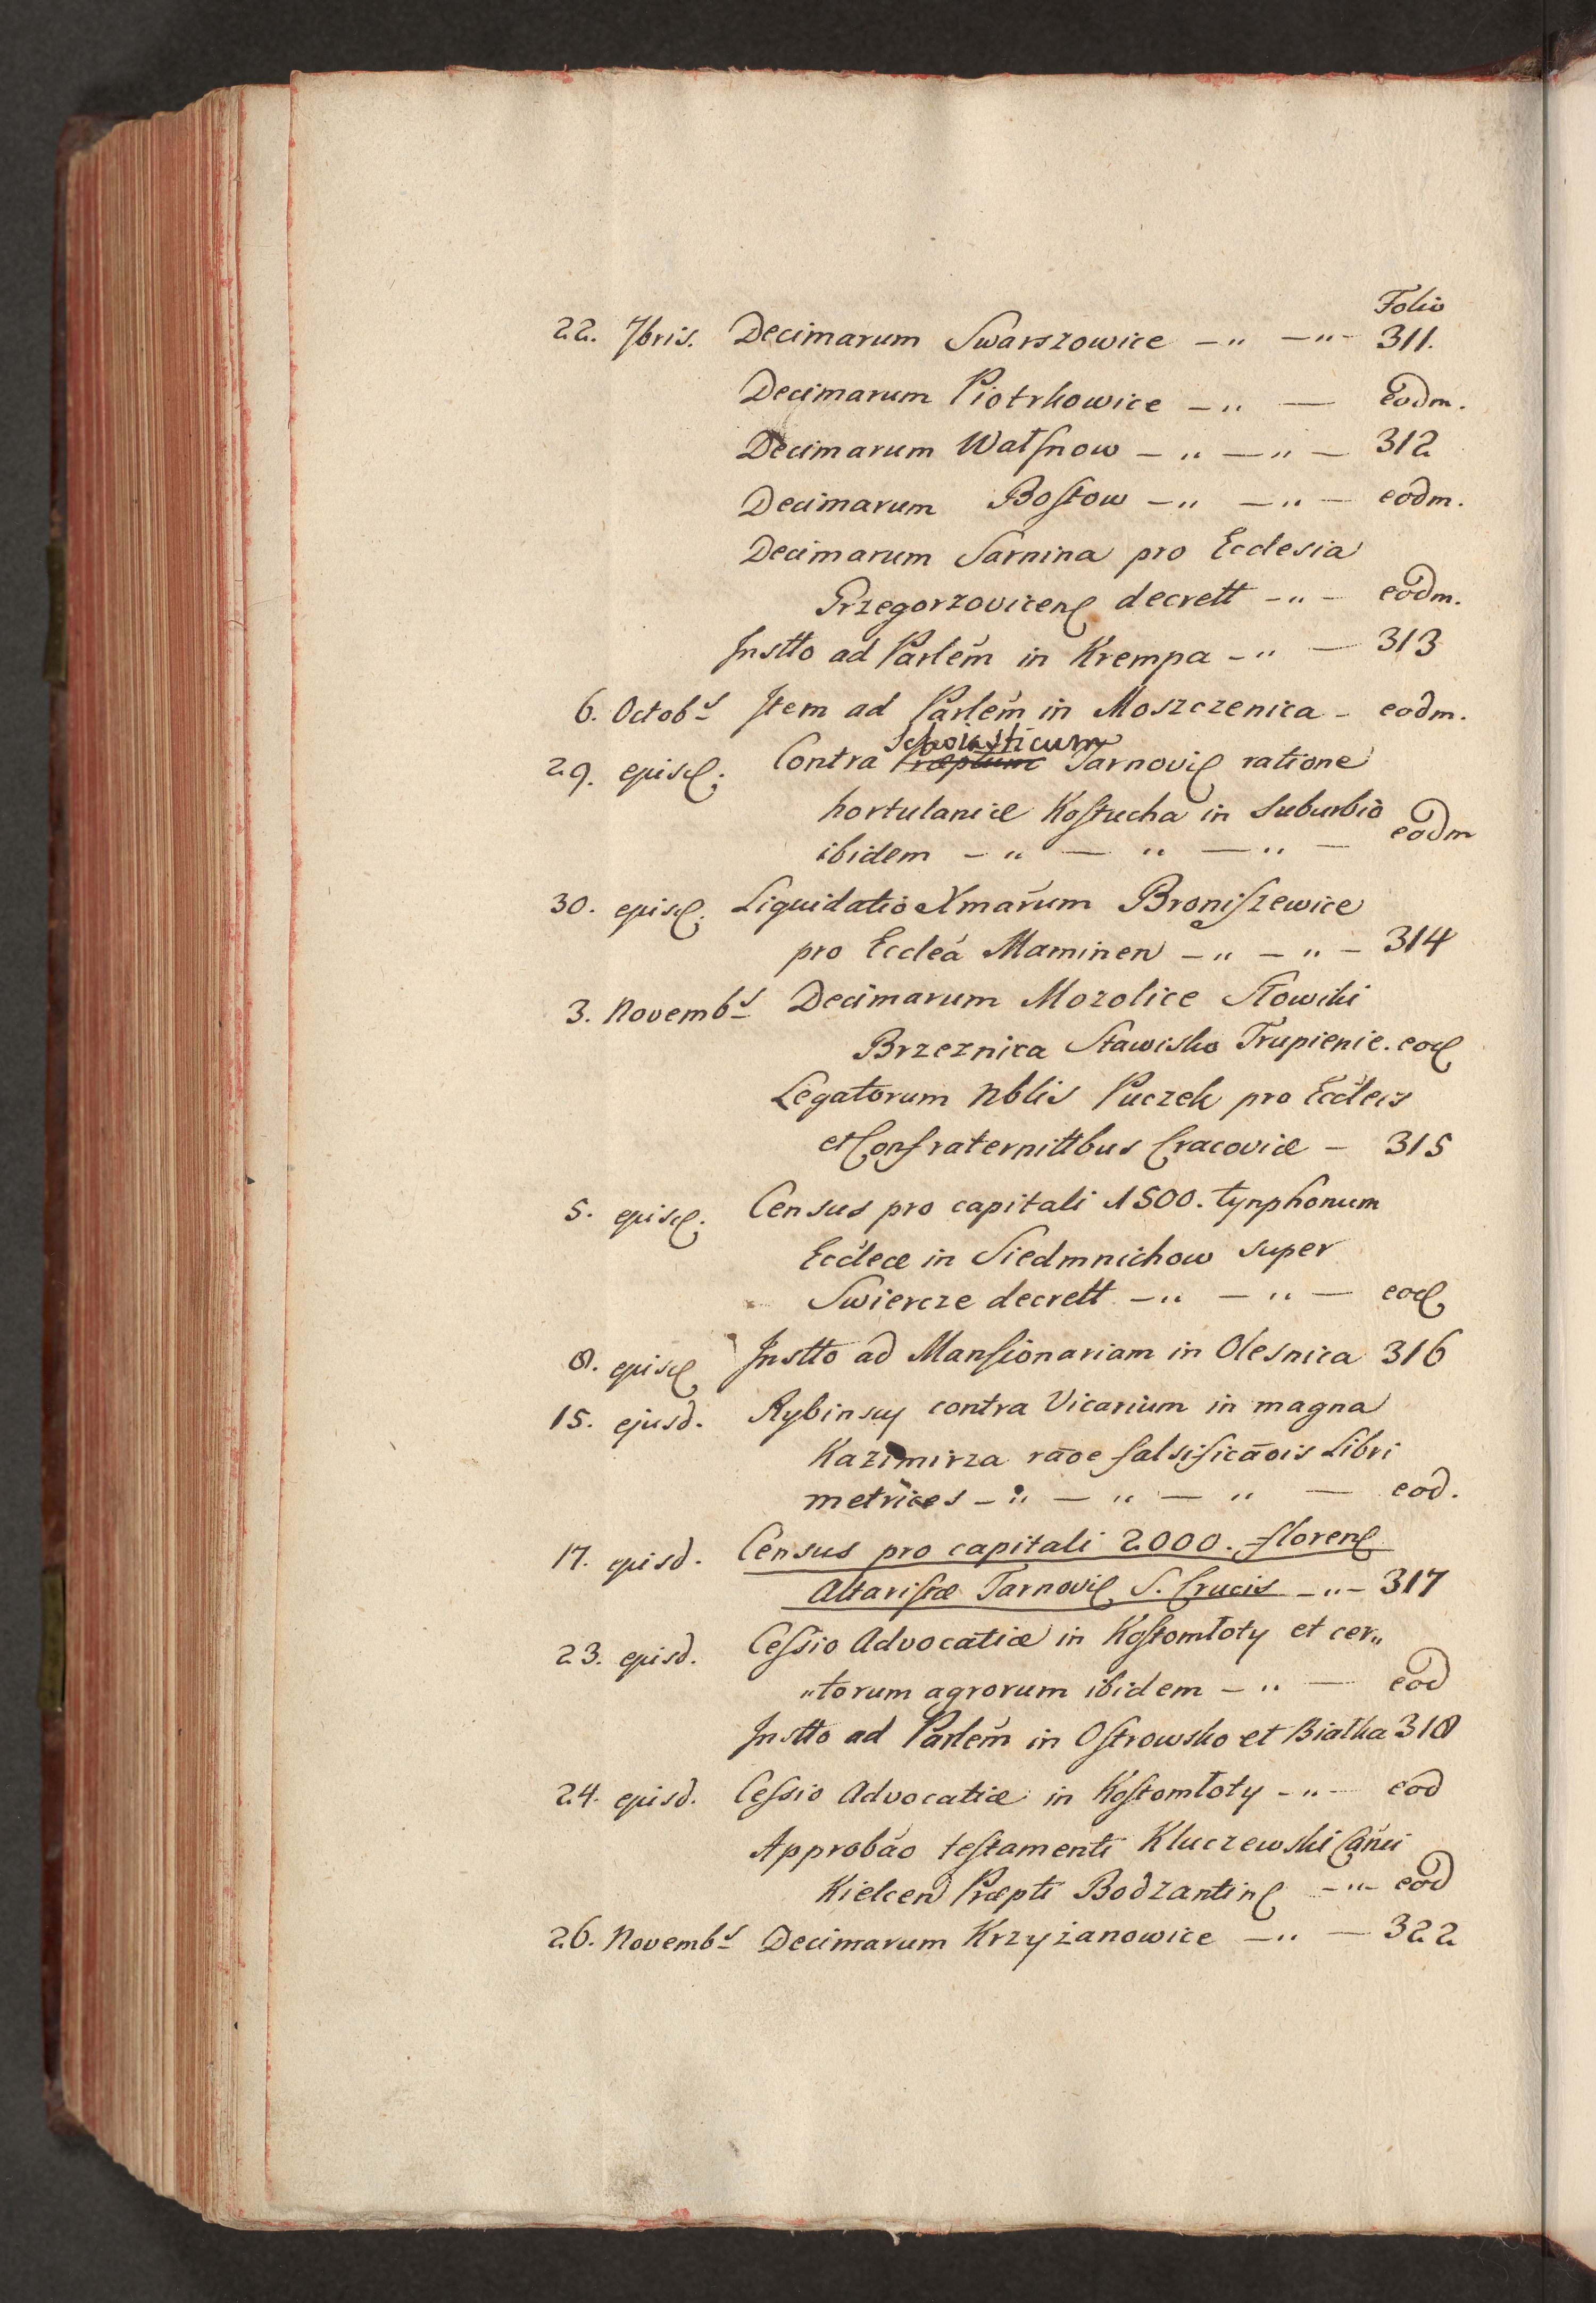 Folio
22. 7bris. Decimarum Swarszowice -„ -„- 311.
Decimarum Piotrkowice -„ — Eodm.
Decimarum Watſnow -„ -„- 312
Decimarum Boſtow -„ -„- eodm.
Decimarum Sarnina pro Ecclesia
Grzegorzovicen decrett -„- eodm.
Instto ad Parlem̃ in Krempa -„ - 313
6. Octobs Item ad Parlem̃ in Moszczenica - eodm.
Scholasticum
29. ejusd. Contra Præptum Tarnovi ratione
hortulaniæ Koſtucha in Suburbio
ibidem -„ — „ —„ — eodm
30. ejusd. Liquidatio Xmarũm Broniſzewice
pro Eccleã Maminen -„ - „ - 314
3. Novembs Decimarum Mozolice Słowiki
Brzeznica Stawisko Trupienie. eod
Legatorum Nblis Puczek pro Eccleis
et Confraternittbus Cracoviæ - 315
5. ejusd. Census pro capitali 1500. tynphonum
Eccleæ in Siedmnichow super
Swiercze decrett -„ - „ - eod
8. ejusd Instto ad Manſionariam in Olesnica 316
15. ejusd. Rybinscy contra Vicarium in magna
Kazimirza raõe falsificaõis Libri
metrices -„ — „ — „ — eod.
17. ejusd. Census pro capitali 2000. floren
Altariſtæ Tarnovi S. Crucis -„- 317
23. ejusd. Ceſsio Advocatiæ in Koſtomłoty et cer„
„torum agrorum ibidem -„ — eod
Instto ad Parlem̃ in Oſtrowsko et Białka 318
24. ejusd. Ceſsio Advocatiæ in Koſtomłoty -„- eod
Approbão teſtamenti Kluczewski Cãnci
Kielcen Præpti Bodzantin -„- eod
26. Novembs Decimarum Krzyżanowice -„ - 322